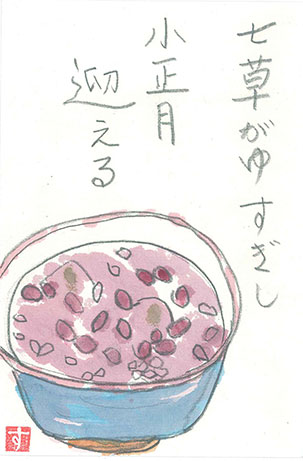 七草がゆすぎし
小正月
迎える
す